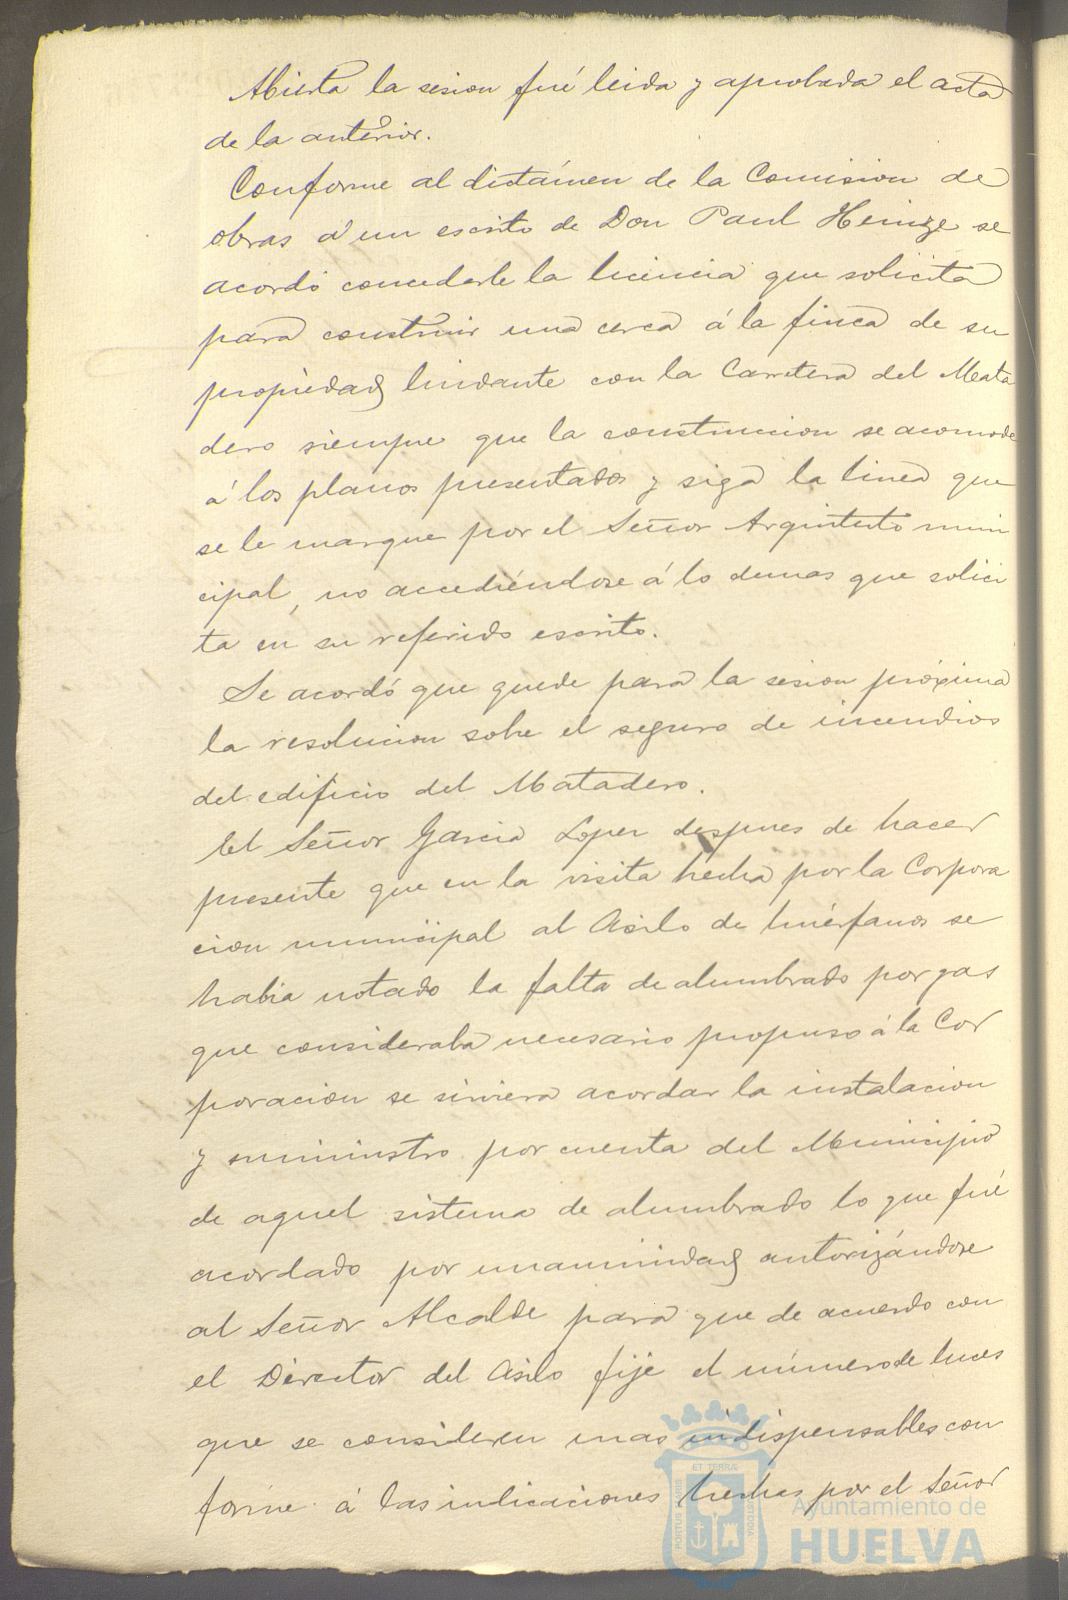 Abierta la sesion fué leida y aprobada el acta
de la anterior.
Conforme al dictámen de la Comision de
obras á un escrito de Don Paul Heinge se
acordó concederle la licencia que solicita
para construir una cerca á la finca de su
propiedad lindante con la Carretera del Mata
dero siempre que la construccion se acomode
á los planos presentados y siga la linea que
se le marque por el Señor Arquitecto muni
cipal, no accediéndose á lo demas que solici
ta en su referido escrito.
Se acordó que quede para la sesion próxima
la resolucion sobre el seguro de incendios
del edificio del Matadero.
El Señor Garcia Lopez despues de hacer
presente que en la visita hecha por la Corpora
cion municipal al Asilo de huérfanos se
habia notado la falta de alumbrado por gas
que consideraba necesario propuso á la Cor
poracion se sirviera acordar la instalacion
y suministro por cuenta del Municipio
de aquel sistema de alumbrado lo que fué
acordado por unanimidad autorizándose
al Señor Alcalde para que de acuerdo con
el Director del Asilo fije el número de luces
que se consideren mas indispensables con
forme á las indicaciones hechas por el Señor
PORTUS MARIS
ET TERRÆ
CUSTODIA
Ayuntamiento de
HUELVA